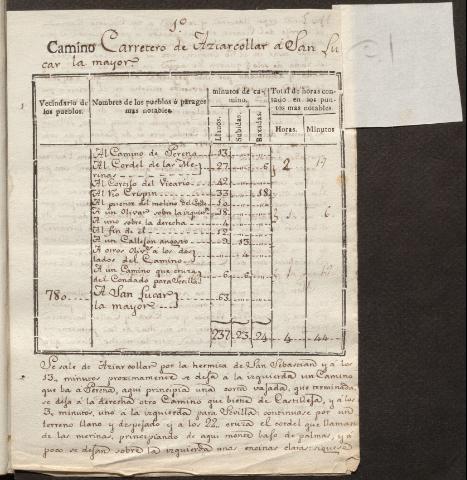 1º
Camino Carretero de Aziarcollar á San Lu
car la mayor
Vecindario de los pueblos.
Nombres de los pueblos ó parages mas notables.
minutos de camino.
Llanos. Subidas. Baxadas.
Total de horas contado en los puntos mas notables.
Horas. Minutos
Al Camino de Gerena 13
Al Cordel de las Me
rinas 27 6 2 17
Al Cortijo del Vicario 42
Al Rio Crispin 33 18
Al puente del molino 10
A un Olivar sobre la izquier 18
A uno sobre la derecha 4 6
Al fin de el 12
A un Callejon angosto 9 13
A otros Oliv. a los dos
lados del Camino 4
A un Camino que cruza
del Condado para Sevilla 6 6
780 A San Lucar
la mayor 63
237 23 24 4 44
Se sale de Aziarcollar por la hermita de San Sebastian y á los
13 minutos proximamente se deja á la izquierda un Camino
que ba á Gerena, aqui principia una corta vajada, que terminada
se deja á la derecha otro Camino que biene de Castilleja, y á los
3 minutos, uno á la izquierda para Sevilla: continuase por un
terreno llano y despejado y á los 22 cruza el cordel que llaman
de las merinas, principiando de aqui monte bajo de palmas, y á
poco se dejan sobre la izquierda unas encinas claras: siguese